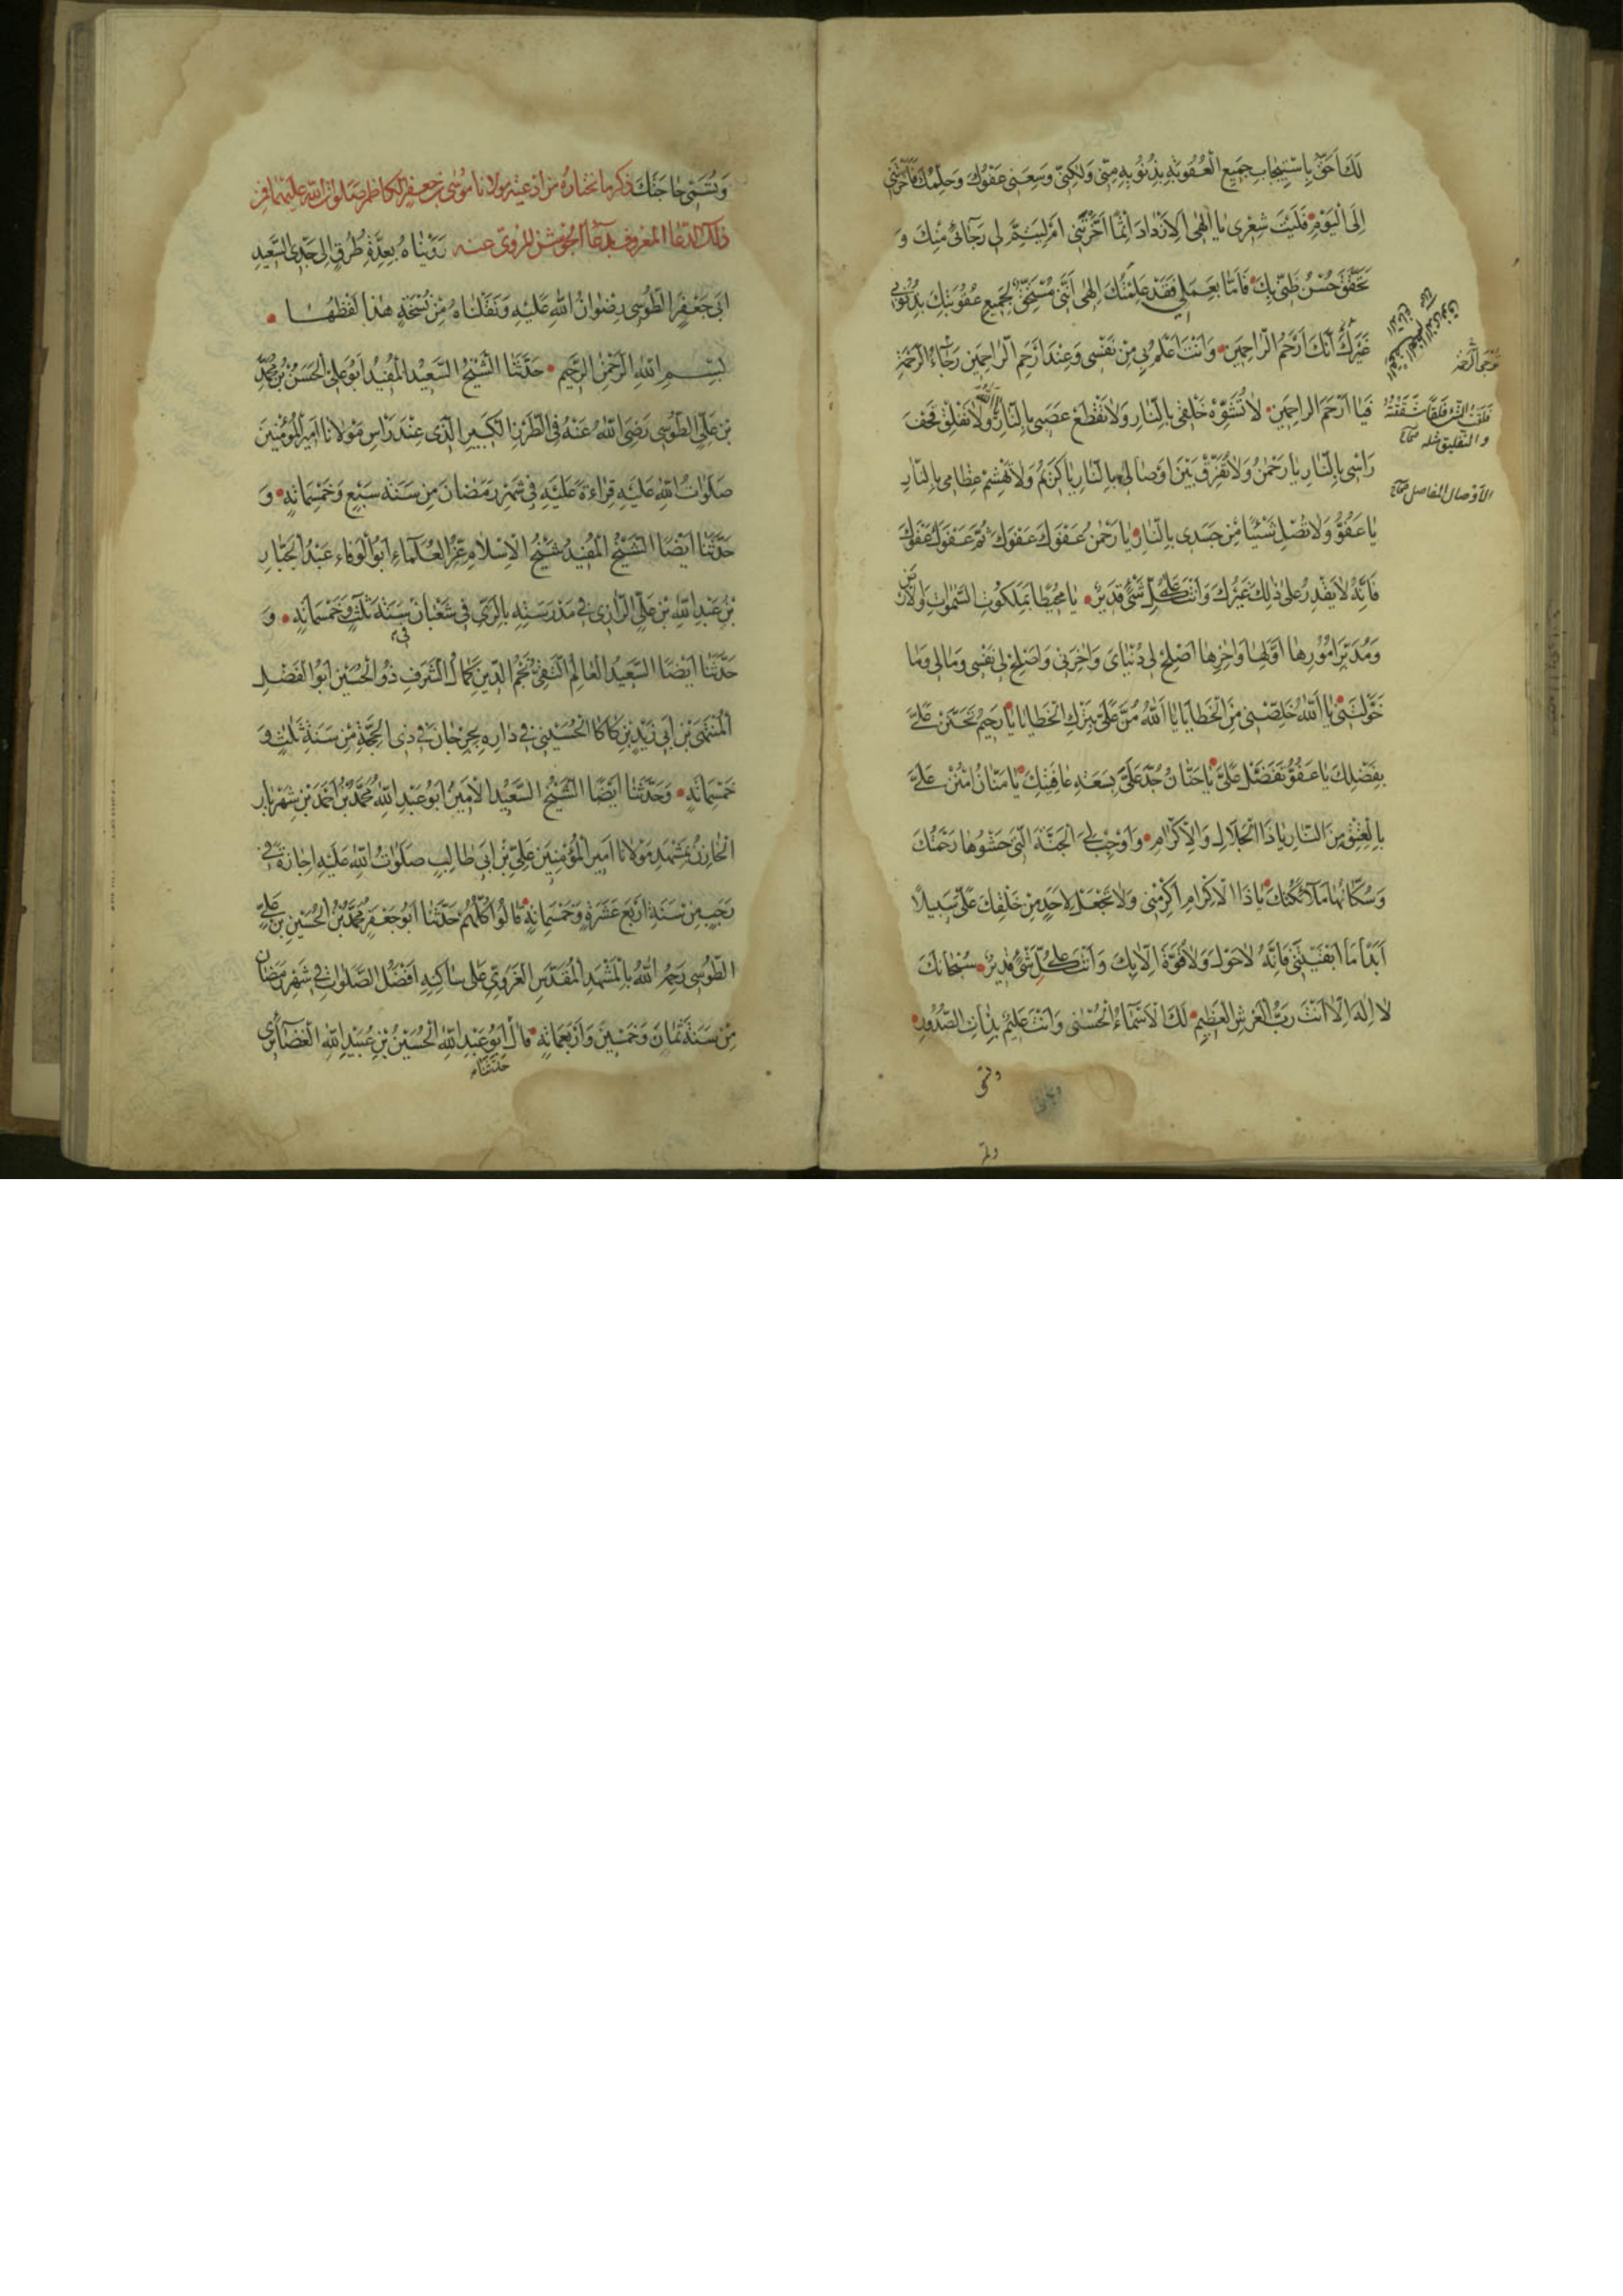 لَكَ اَحَقُّ بِاسْتِيجَابِ جَمِيعِ الْعُقُوبَةِ بِذُنُوبِهِ مِنّى وَلٰكِنّى وَسِعَنى عَفْوُكَ وَحِلْمُكَ فَاَخَّرْتَنى
اِلَى الْيَوْمِ فَلَيْتَ شِعْرى يٰا اِلٰهى اَلِاَزْدٰادَ اِثْمًا اَخَّرْتَنى اَمْ لِيَتِمَّ لى رَجٰائى مِنْكَ وَ
يَتَحَقَّقَ حُسْنُ ظَنّى بِكَ فَاَمّٰا بِعَمَلى فَقَدْ عَلِمْتُكَ اِلٰهى اَنّى مُسْتَحِقٌّ لِجَمِيعِ عُقُوبَتِكَ بِذُنُوبى
غَيْرَ اَنَّكَ اَرْحَمُ الرّٰاحِمِينَ وَاَنْتَ اَعْلَمُ بى مِنْ نَفْسى وَعِنْدَ اَرْحَمِ الرّٰاحِمِينَ رَجٰاءُ الرَّحْمَةِ
فَيٰا اَرْحَمَ الرّٰاحِمِينَ لٰا تُشَوِّهْ خَلْقى بِالنّٰارِ وَلٰا تَقْطَعْ عَصَبى بِالنّٰارِ وَلٰا تَفْلِقْ قِحْفَ
رَاْسى بِالنّٰارِ يٰا رَحْمٰنُ وَلٰا تُفَرِّقْ بَيْنَ اَوْصٰالى بِالنّٰارِ يٰا كَرِيمُ وَلٰا تَهْشِمْ عِظٰامى بِالنّٰارِ
يٰا عَفُوُّ وَلٰا تَصْلِ شَيْئًا مِنْ جَسَدى بِالنّٰارِ يٰا رَحْمٰنُ عَفْوَكَ عَفْوَكَ ثُمَّ عَفْوَكَ عَفْوَكَ
فَاِنَّهُ لٰا يَقْدِرُ عَلٰى ذٰلِكَ غَيْرُكَ وَاَنْتَ عَلٰى كُلِّ شَىْءٍ قَدِيرٌ يٰا مُحِيطًا بِمَلَكُوتِ السَّمٰوٰاتِ وَالْاَرْضِ
وَمُدَبِّرَ اُمُورِهٰا اَوَّلِهٰا وَاٰخِرِهٰا اَصْلِحْ لى دُنْيٰاىَ وَاٰخِرَتى وَاَصْلِحْ لى نَفْسى وَمٰالى وَمٰا
خَوَّلْتَنى يٰا اَللّٰهُ خَلِّصْنى مِنَ الْخَطٰايٰا يٰا اَللّٰهُ مُنَّ عَلَىَّ بِتَرْكِ الْخَطٰايٰا يٰا رَحِيمُ تَحَنَّنْ عَلَىَّ
بِفَضْلِكَ يٰا عَفُوُّ تَفَضَّلْ عَلَىَّ يٰا حَنّٰانُ جُدْ عَلَىَّ بِسَعَةِ عٰافِيَتِكَ يٰا مَنّٰانُ امْنُنْ عَلَىَّ
بِالْعِتْقِ مِنَ النّٰارِ يٰا ذَا الْجَلٰالِ وَالْاِكْرٰامِ وَاَوْجِبْ لِىَ الْجَنَّةَ الَّتى حَشْوُهٰا رَحْمَتُكَ
وَسُكّٰانُهٰا مَلٰائِكَتُكَ يٰا ذَا الْاِكْرٰامِ اَكْرِمْنى وَلٰا تَجْعَلْ لِاَحَدٍ مِنْ خَلْقِكَ عَلَىَّ سَبِيلًا
اَبَدًا مٰا اَبْقَيْتَنى فَاِنَّهُ لٰا حَوْلَ وَلٰا قُوَّةَ اِلّٰا بِكَ وَاَنْتَ عَلٰى كُلِّ شَىْءٍ قَدِيرٌ سُبْحٰانَكَ
لٰا اِلٰهَ اِلّٰا اَنْتَ رَبُّ الْعَرْشِ الْعَظِيمِ لَكَ الْاَسْمٰاءُ الْحُسْنٰى وَاَنْتَ عَلِيمٌ بِذٰاتِ الصُّدُورِ
فَلَقْتُ الشَّىْءَ فَلْقًا شَقَقْتُهُ
و التفليق مثله صحاح
الاَوْصال المفاصل صحاح
وتسمى
وَتُسَمّى حٰاجَتَكَ ذكر ما نختاره من ادعية مولانا موسى بن جعفر الكاظم صلوات الله عليهما فمن
ذلك الدعاء المعروف بدعاء الجوشن المروى عنه رَوَيْنٰاهُ بِعِدَّةِ طُرُقٍ اِلٰى جَدِّى السَّعِيدِ
اَبى جَعْفَرٍ الطُّوسى رِضْوٰانُ اللّٰهِ عَلَيْهِ وَنَقَلْنٰاهُ مِنْ نُسْخَةٍ هٰذٰا لَفْظُهٰا
بِسْمِ اللّٰهِ الرَّحْمٰنِ الرَّحِيمِ حَدَّثَنَا الشَّيْخُ السَّعِيدُ الْمُفِيدُ اَبُو عَلِىٍّ الْحَسَنُ بْنُ مُحَمَّدِ
بْنِ عَلِىٍّ الطُّوسى رَضِىَ اللّٰهُ عَنْهُ فِى الطَّرَزِ الْكَبِيرِ الَّذى عِنْدَ رَاْسِ مَوْلٰانٰا اَمِيرِ الْمُؤْمِنِينَ
صَلَوٰاتُ اللّٰهِ عَلَيْهِ قِرٰاءَةً عَلَيْهِ فى شَهْرِ رَمَضٰانَ مِنْ سَنَةِ سَبْعٍ وَخَمْسِمِائَةٍ وَ
حَدَّثَنٰا اَيْضًا الشَّيْخُ الْمُفِيدُ شَيْخُ الْاِسْلٰامِ عِزُّ الْعُلَمٰاءِ اَبُو الْوَفٰاءِ عَبْدُ الْجَبّٰارِ
بْنُ عَبْدِ اللّٰهِ بْنِ عَلِىٍّ الرّٰازى فى مَدْرَسَتِهِ بِالرَّىِّ فى شَعْبٰانَ سَنَةَ ثَلٰثٍ وَخَمْسِمِائَةٍ وَ
حَدَّثَنٰا اَيْضًا السَّعِيدُ الْعٰالِمُ التَّقِىُّ نَجْمُ الدِّينِ كَمٰالُ الشَّرَفِ ذُو الْحَسَبَيْنِ اَبُو الْفَضْلِ
الْمُنْتَهَى بْنُ اَبى زَيْدِ بْنِ كٰاكٰا الْحُسَيْنى فى دٰارِهِ بِجُرْجٰانَ فى ذِى الْحِجَّةِ مِنْ سَنَةِ ثَلٰثٍ وَ
خَمْسِمِائَةٍ وَحَدَّثَنٰا اَيْضًا الشَّيْخُ السَّعِيدُ الْاَمِينُ اَبُو عَبْدِ اللّٰهِ مُحَمَّدُ بْنُ اَحْمَدَ بْنِ شَهْرِيٰارَ
الْخٰازِنُ بِمَشْهَدِ مَوْلٰانٰا اَمِيرِ الْمُؤْمِنِينَ عَلِىِّ بْنِ اَبى طٰالِبٍ صَلَوٰاتُ اللّٰهِ عَلَيْهِ اِجٰازَةً فى
رَجَبٍ مِنْ سَنَةِ اَرْبَعَ عَشَرَةَ وَخَمْسِمِائَةٍ قٰالُوا كُلُّهُمْ حَدَّثَنٰا اَبُو جَعْفَرٍ مُحَمَّدُ بْنُ الْحُسَيْنِ بْنِ عَلِىٍّ
الطُّوسى رَحِمَهُ اللّٰهُ بِالْمَشْهَدِ الْمُقَدَّسِ الْغَرَوِىِّ عَلٰى سٰاكِنِهِ اَفْضَلُ الصَّلَوٰاتِ فى شَهْرِ رَمَضٰانَ
مِنْ سَنَةِ ثَمٰانَ وَخَمْسِينَ وَاَرْبَعِمِائَةٍ قٰالَ اَبُو عَبْدِ اللّٰهِ الْحُسَيْنُ بْنُ عُبَيْدِ اللّٰهِ الْغَضٰائِرى
حدثنا